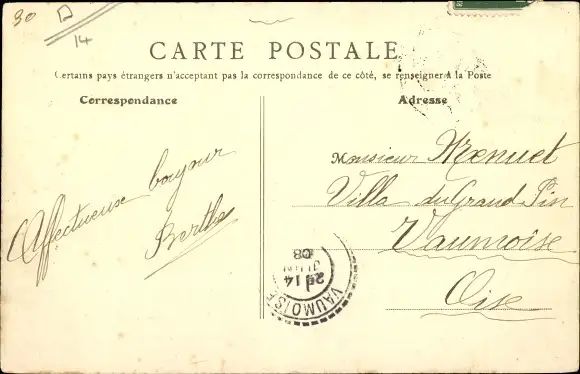 30
14
CARTE POSTALE
Certains pays étrangers n'acceptant pas la correspondance de ce côté, se renseigner à la Poste
Correspondance
Adresse
Affectueuse bonjour
Berthe
Monsieur Menuet
Villa du Grand Pin
Vaumoise
Oise
VAUMOISE
14
JUIN
08